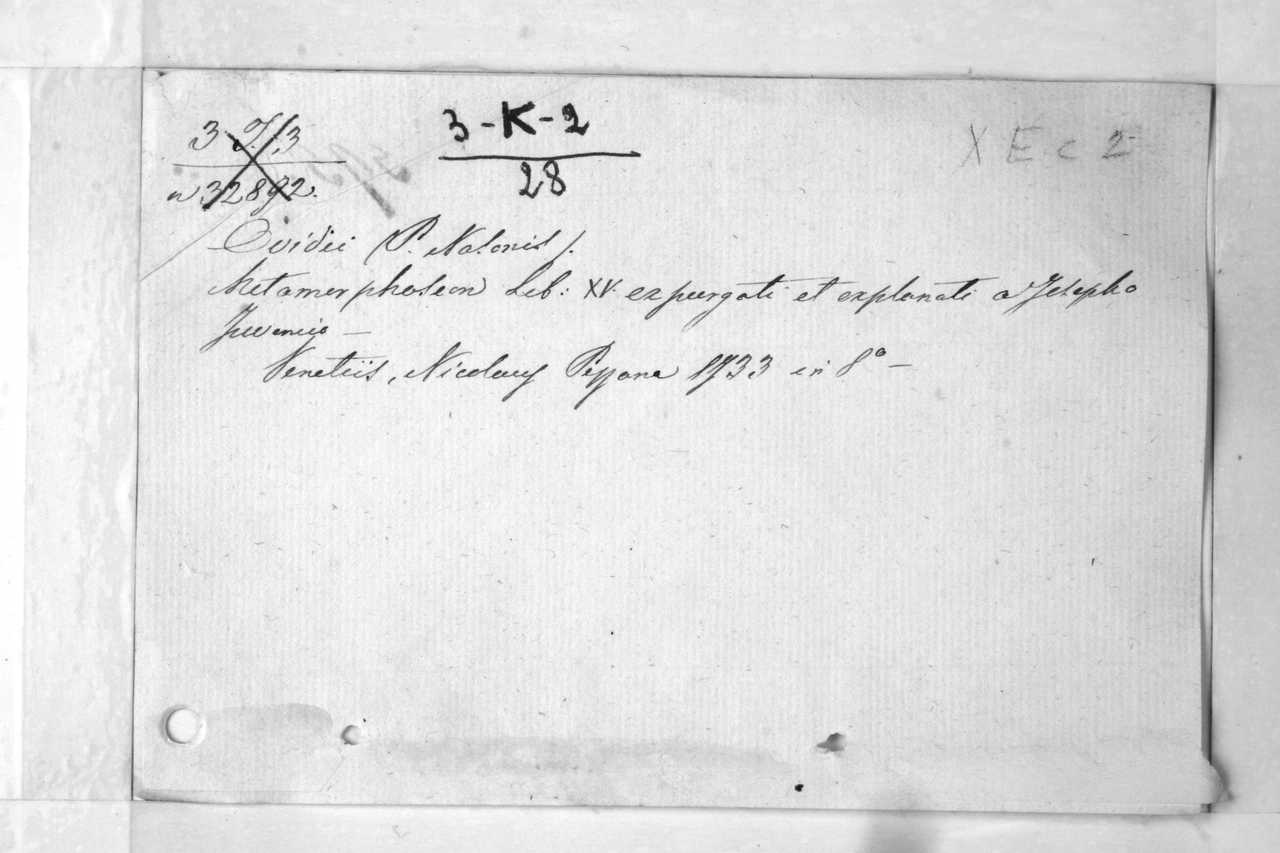 n 32892.
3-K-2
28
X E c 2
Ovidii (P. Nasonis).
Metamorphoseon Lib: XV. expurgati et explanati a Josepho
Juvencio —
Venetiis, Nicolaus Pezzana 1733 in 8° —